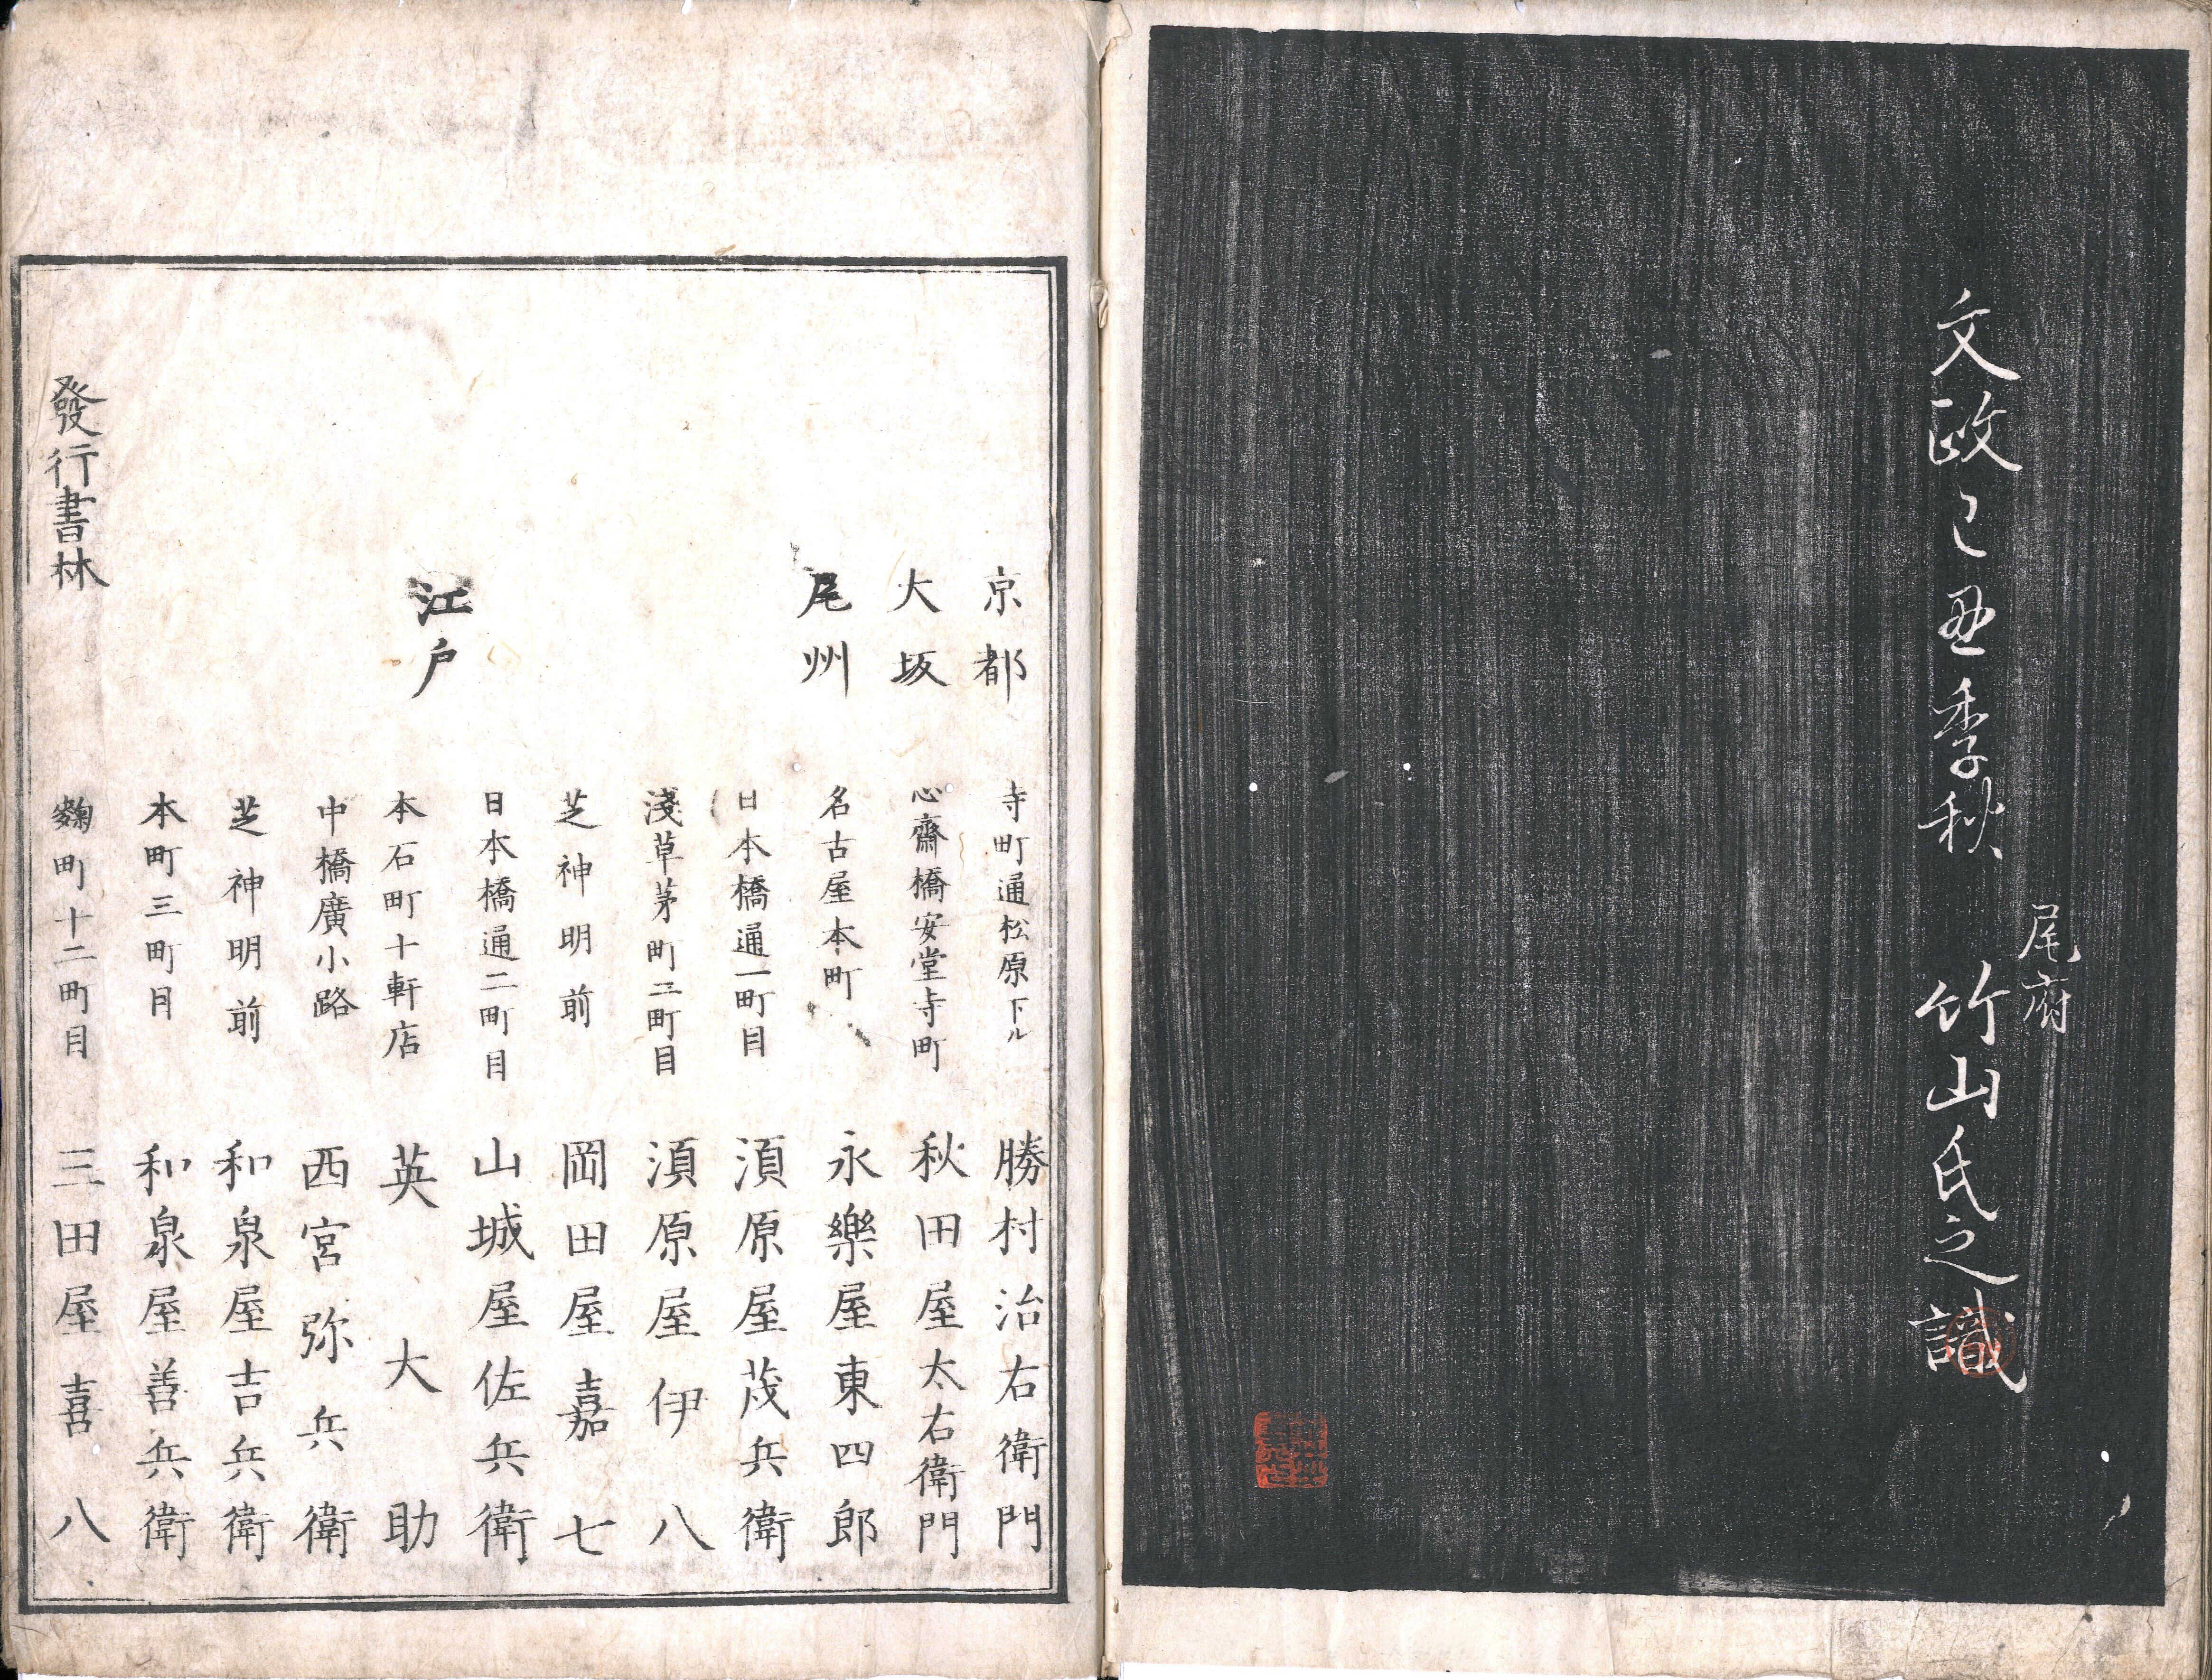 文政己丑季秋
尾府
竹山氏之識
京都 寺町通松原下ル 勝村治右衛門
大坂 心齋橋安堂寺町 秋田屋太右衛門
尾州 名古屋本町 永樂屋東四郎
日本橋通一町目 須原屋茂兵衛
淺草茅町二町目 須原屋伊八
芝神明前 岡田屋嘉七
江戸 日本橋通二町目 山城屋佐兵衛
本石町十軒店 英大助
中橋廣小路 西宮弥兵衛
芝神明前 和泉屋吉兵衛
本町三町目 和泉屋善兵衛
麹町十二町目 三田屋喜八
發行書林